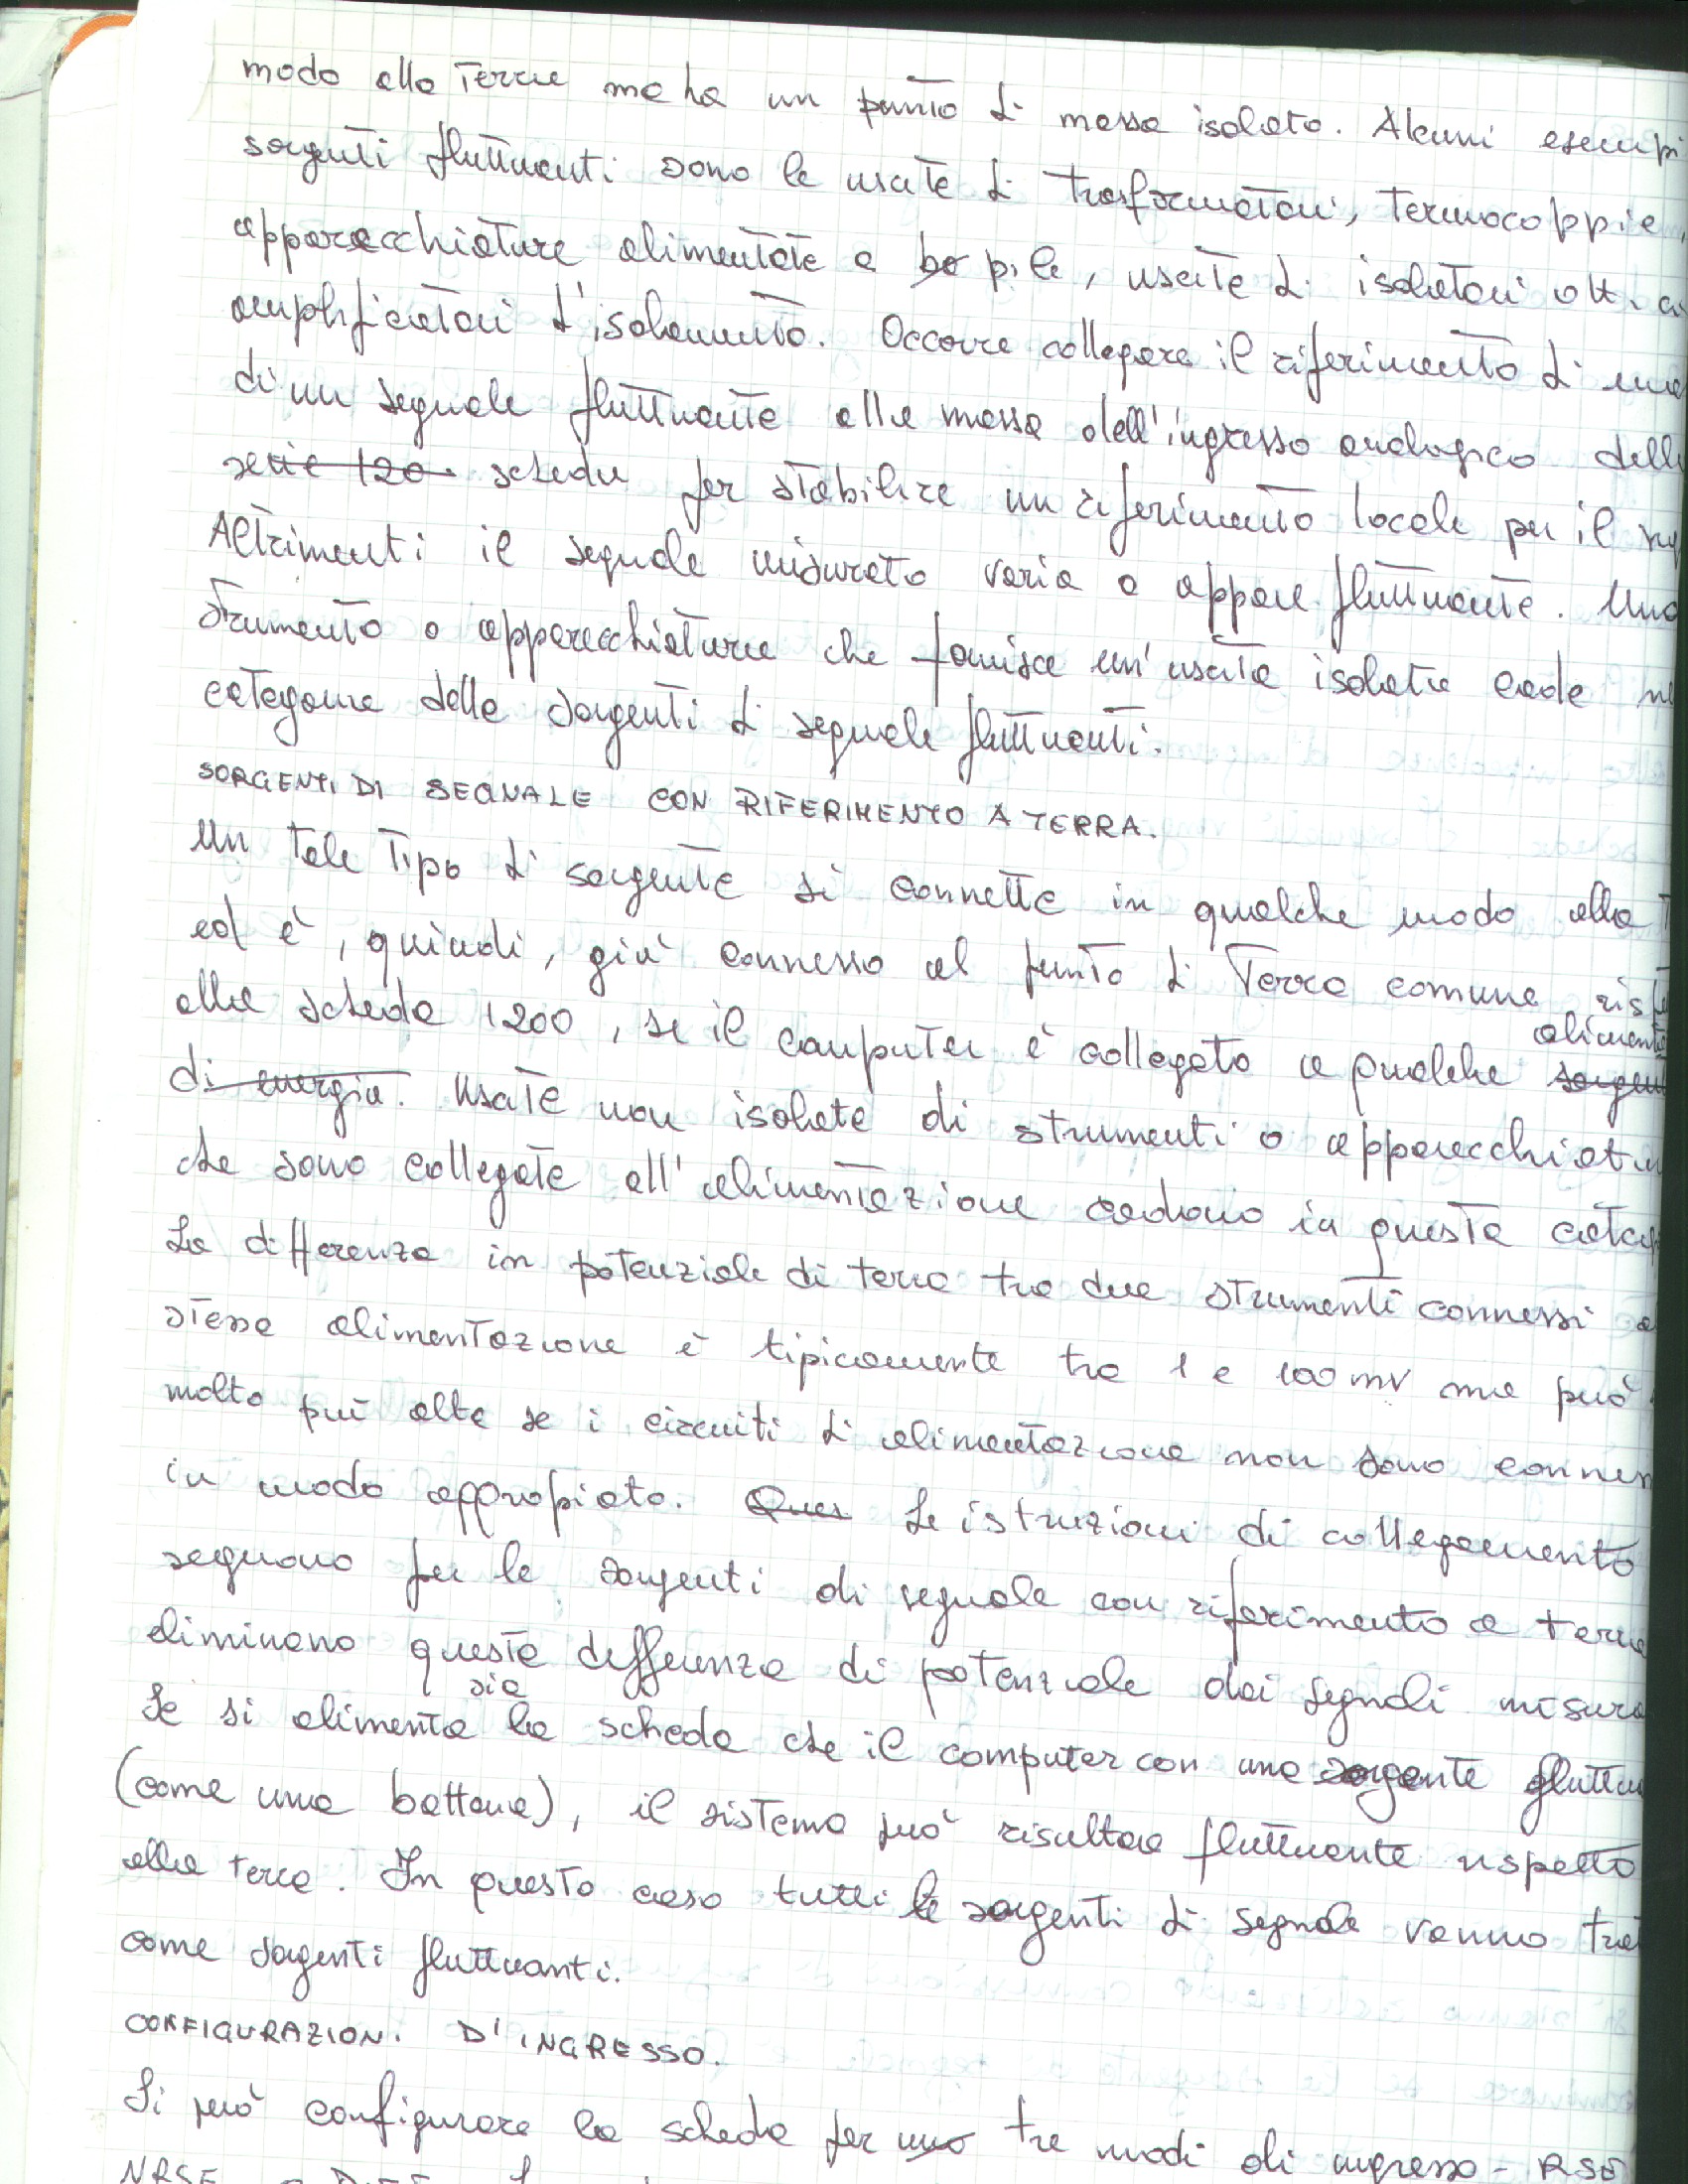 modo alla Terra ma ha un punto di massa isolato. Alcuni esempi
sorgenti fluttuanti sono le uscite di trasformatori, Termocoppie,
apparecchiature alimentate a ba pile, uscite di isolatori ott.ci
amplificatori d'isolamento. Occorre collegare il riferimento di
di un segnale fluttuante alla massa dell'ingresso analogico dell
serie 120 scheda per stabilire un riferimento locale per il
Altrimenti il segnale misurato varia o appare fluttuante. Uno
strumento o apparecchiatura che fornisce un'uscita isolata cade
categoria delle sorgenti di segnale fluttuanti.
SORGENTI DI SEGNALE CON RIFERIMENTO A TERRA.
Un tale Tipo di sorgente si connette in qualche modo alla
ed è, quindi, già connesso al punto di Terra comune
alimenta
alla scheda 1200, se il computer è collegato a qualche sorgen
di energia. Uscite non isolate di strumenti o apparecchiatu
che sono collegate all'alimentazione cadono in questa categ
La differenza in potenziale di terra tra due strumenti connessi a
stessa alimentazione è tipicamente tra 1 e 100 mV ma può
molto più alta se i circuiti di alimentazione non sono connes
in modo appropiato. Ques Le istruzioni di collegamento
seguono per le sorgenti di segnale con riferimento a terra
eliminano questa differenza di potenziale dai segnali misura
sia
Se si alimenta la scheda che il computer con una sorgente fluttua
(come una batteria), il sistema può risultare fluttuante rispetto
alla terra. In questo caso tutti le sorgenti di segnale vanno trat
come sorgenti fluttuanti.
CONFIGURAZIONI D'INGRESSO.
Si può configurare la scheda per uno tre modi di ingresso - RSE
NRSE o DIFF